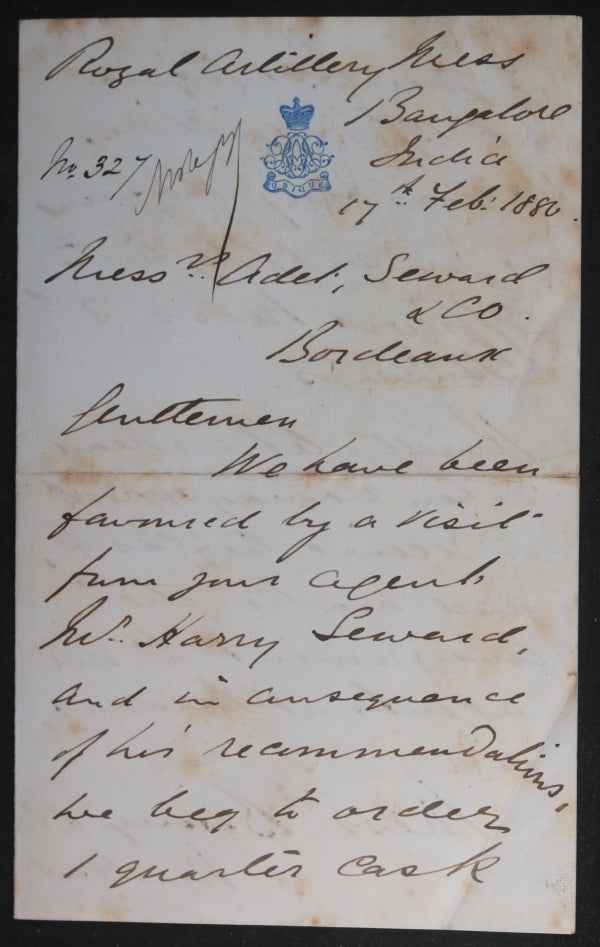 Royal Artillery Mess
Bangalore
India
No. 327
UBIQUE
17th Feb: 1880.
Messrs Adet, Seward
& CO.
Bordeaux
Gentlemen
We have been
favoured by a visit
from your agent
Mr. Harry Seward,
and in consequence
of his recommendations,
we beg to order
1 quarter cask